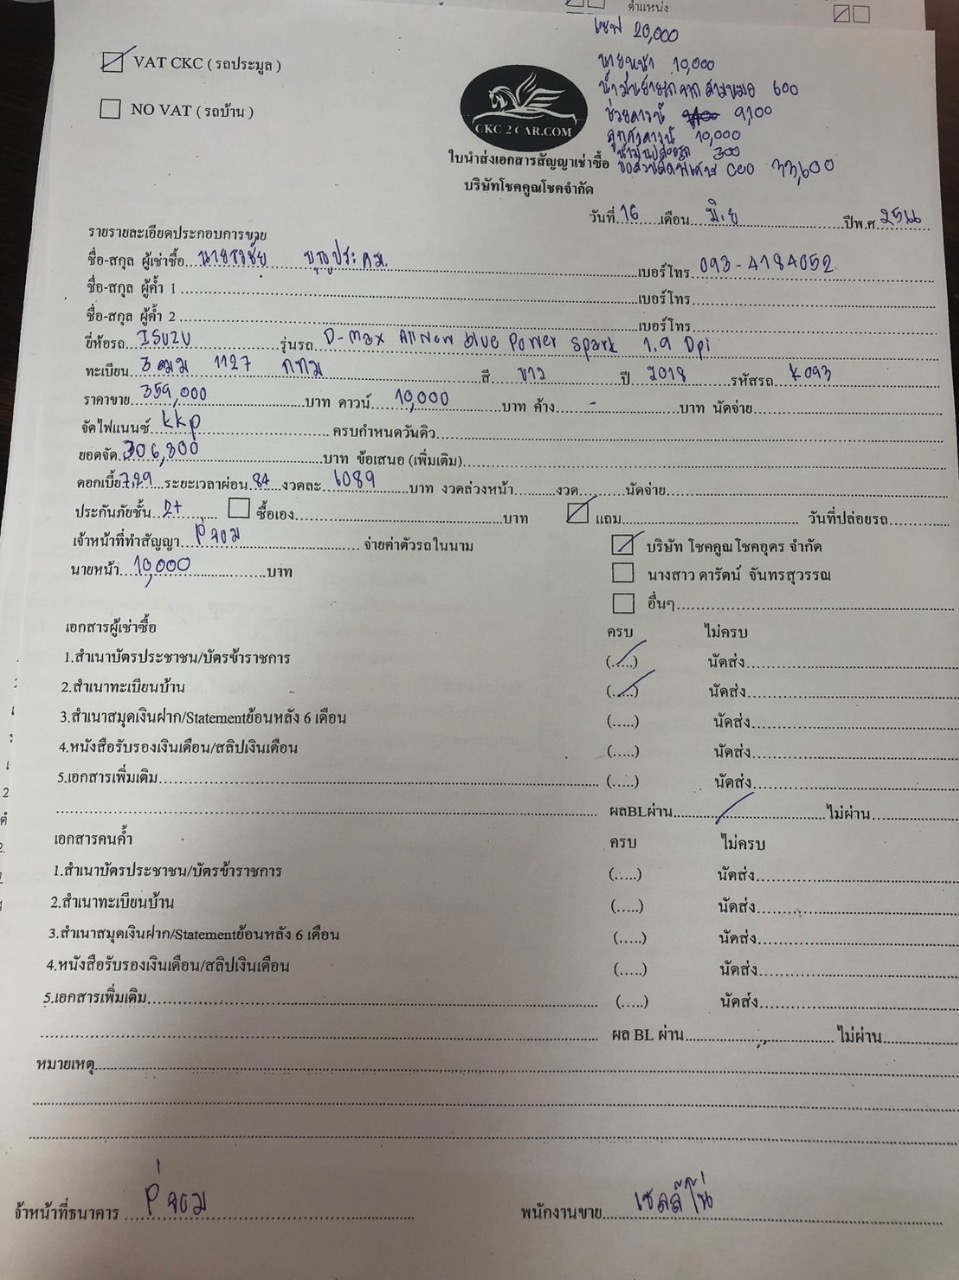 ตำแหน่ง
เซฟ 20,000
VAT CKC ( รถประมูล )
นายหน้า 10,000
600
NO VAT ( รถบ้าน )
ช่วยดาวน์ 9,100
CKC 2 CAR.COM
ลูกค้าดาวน์ 10,000
300
ใบนำส่งเอกสารสัญญาเช่าซื้อ
CEO 33,600
บริษัทโชคคูณโชคจำกัด
วันที่ 16 เดือน มิ.ย ปีพ.ศ. 2566
รายรายละเอียดประกอบการขาย
ชื่อ-สกุล ผู้เช่าซื้อ นายธวัชัย บุญประคม เบอร์โทร 093-4184052
ชื่อ-สกุล ผู้ค้ำ 1 เบอร์โทร
ชื่อ-สกุล ผู้ค้ำ 2 เบอร์โทร
ยี่ห้อรถ ISUZU รุ่นรถ D-max All New blue Power Spark 1.9 Dpi
ทะเบียน 3ฒฒ 1127 กทม สี ขาว ปี 2018 รหัสรถ K093
ราคาขาย 359,000 บาท ดาวน์ 10,000 บาท ค้าง - บาท นัดจ่าย
จัดไฟแนนซ์ kkp ครบกำหนดวันคิว
ยอดจัด 306,800 บาท ข้อเสนอ (เพิ่มเติม)
ดอกเบี้ย 7.29 ระยะเวลาผ่อน 84 งวดละ 6089 บาท งวดล่วงหน้า งวด นัดจ่าย
ประกันภัยชั้น 2+ ซื้อเอง บาท แถม วันที่ปล่อยรถ
เจ้าหน้าที่ทำสัญญา พี่จอม จ่ายค่าตัวรถในนาม บริษัท โชคคูณโชคอุดร จำกัด
นายหน้า 10,000 บาท นางสาว ดารัตน์ จันทรสุวรรณ
อื่นๆ
เอกสารผู้เช่าซื้อ ครบ ไม่ครบ
1.สำเนาบัตรประชาชน/บัตรข้าราชการ (.....) นัดส่ง
2.สำเนาทะเบียนบ้าน (.....) นัดส่ง
3.สำเนาสมุดเงินฝาก/Statementย้อนหลัง 6 เดือน (.....) นัดส่ง
4.หนังสือรับรองเงินเดือน/สลิปเงินเดือน (.....) นัดส่ง
5.เอกสารเพิ่มเติม (.....) นัดส่ง
ผลBLผ่าน ไม่ผ่าน
เอกสารคนค้ำ ครบ ไม่ครบ
1.สำเนาบัตรประชาชน/บัตรข้าราชการ (.....) นัดส่ง
2.สำเนาทะเบียนบ้าน (.....) นัดส่ง
3.สำเนาสมุดเงินฝาก/Statementย้อนหลัง 6 เดือน (.....) นัดส่ง
4.หนังสือรับรองเงินเดือน/สลิปเงินเดือน (.....) นัดส่ง
5.เอกสารเพิ่มเติม (.....) นัดส่ง
ผล BL ผ่าน ไม่ผ่าน
หมายเหตุ
จ้าหน้าที่ธนาคาร พี่จอม พนักงานขาย เซลล์โน่